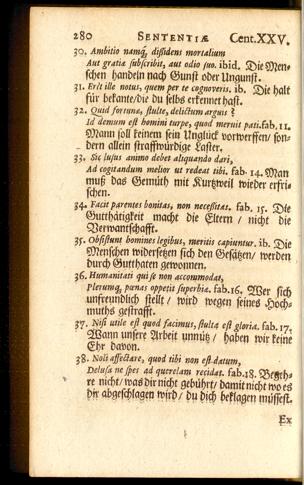 280 SENTENTIÆ Cent.XXV.
30. Ambitio namq́, dissidens mortalium
Aut gratiæ subscribit, aut odio suo. ibid. Die Men-
schen handeln nach Gunst oder Ungunst.
31. Erit ille notus, quem per te cognoveris. ib. Die halt
für bekante/die du selbs erkennet hast.
32. Quid fortunæ, stulte, delictum arguis?
Id demum est homini turpe, quod meruit pati. fab. 11.
Mann soll keinem sein Unglück vorwerffen/son-
dern allein straffwürdige Laster.
33. Sic lusus animo debet aliquando dari,
Ad cogitandum melior ut redeat tibi. fab. 14. Man
muß das Gemüth mit Kurtzweil wieder erfri-
schen.
34. Facit parentes bonitas, non necessitas. fab. 15. Die
Gutthätigkeit macht die Eltern / nicht die
Verwantschafft.
35. Obsistunt homines legibus, meritis capiuntur. ib. Die
Menschen widersetzen sich den Gesätzen/ werden
durch Gutthaten gewonnen.
36. Humanitati qui se non accommodat,
Plerumq́, pœnas oppetit superbiæ. fab. 16. Wer sich
unfreundlich stellt / wird wegen seines Hoch-
muths gestrafft.
37. Nisi utile est quod facimus, stulta est gloria. fab. 17.
Wann unsere Arbeit unnütz / haben wir keine
Ehr davon.
38. Noli affectare, quod tibi non est datum,
Delusa ne spes ad querelam recidat. fab. 18. Begeh-
re nicht/was dir nicht gebührt/damit nicht wo es
dir abgeschlagen wird / du dich beklagen müssest.
Ex